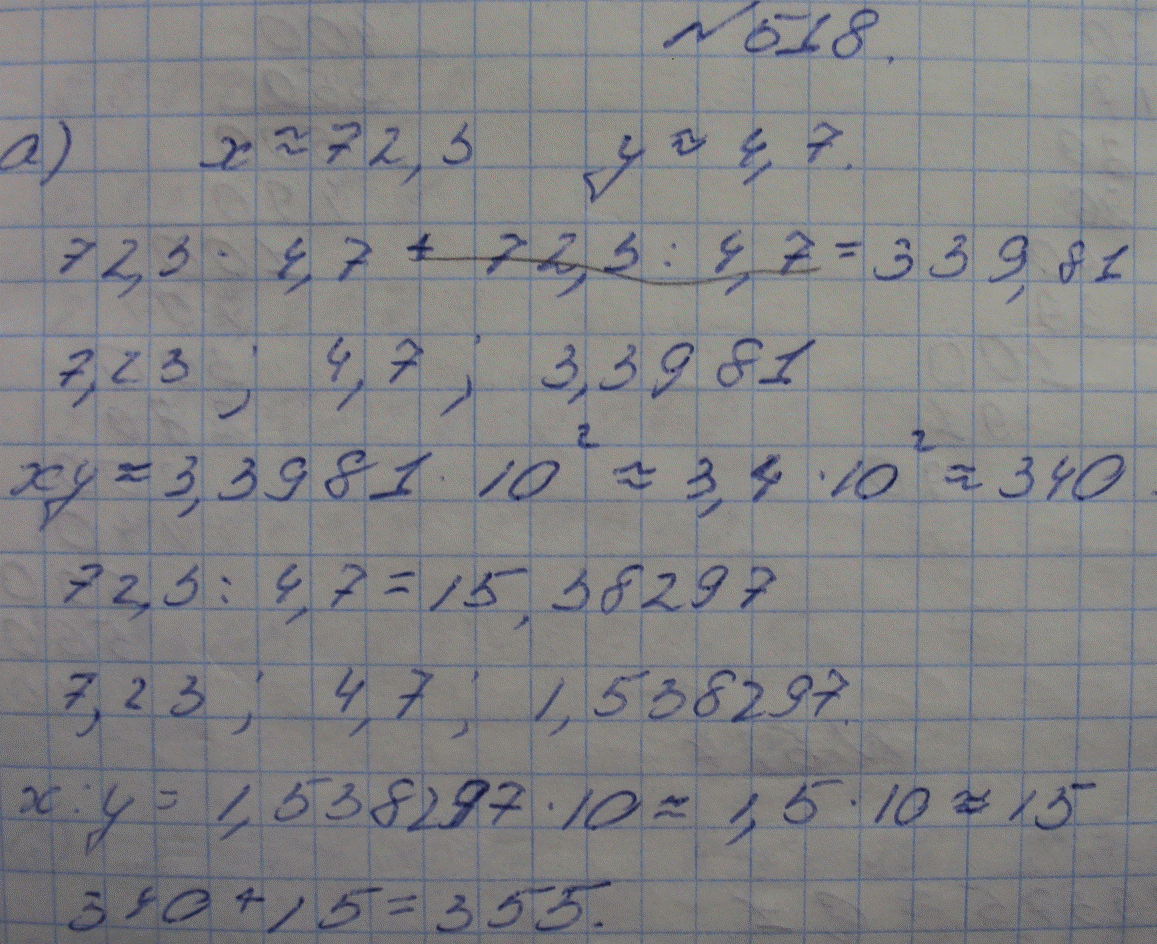 № 518.
а) x ≈ 72,3 y ≈ 4,7.
72,3 · 4,7 + 72,3 : 4,7 = 339,81
7,23 ; 4,7 ; 3,3981
xy ≈ 3,3981 · 10² ≈ 3,4 · 10² ≈ 340.
72,3 : 4,7 = 15,38297
7,23 ; 4,7 ; 1,538297.
x : y = 1,538297 · 10 ≈ 1,5 · 10 ≈ 15
340 + 15 = 355.